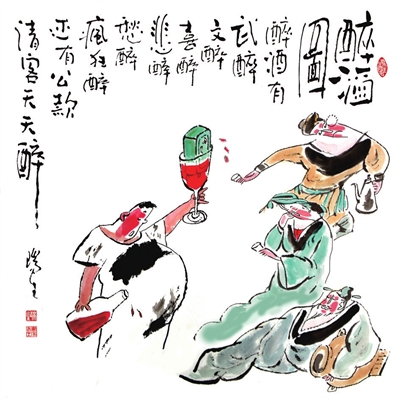 醉酒图
醉酒有
武醉
文醉
喜醉
悲醉
愁醉
疯狂醉
还有公款
请客天天醉